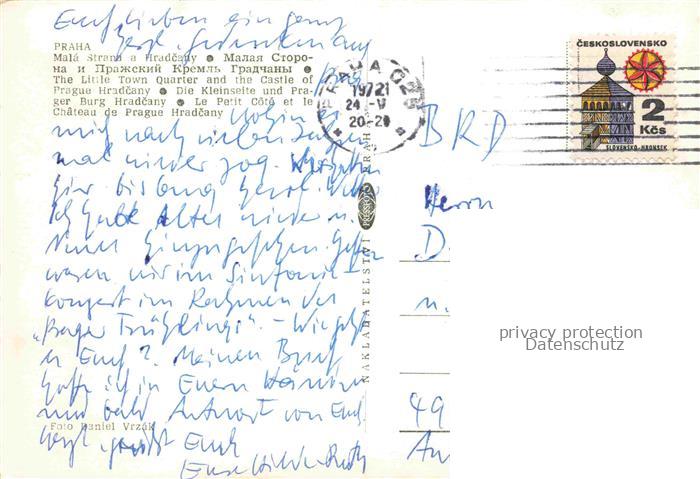 Euch Lieben ein ganz
herzl. Gedenken aus
PRAHA
Malá Strana a Hradčany • Малая Сторо-
на и Пражский Кремль Градчаны •
The Little Town Quarter and the Castle of
Prague Hradčany • Die Kleinseite und Pra-
ger Burg Hradčany • Le Petit Côté et le
Château de Prague Hradčany
mich nach sieben Jahren
mal wieder zog.
hier bislang herrl.
Ich habe Altes wieder u.
Neues hinzugesehen. Gestern
waren wir im Sinfonie-
konzert im Rahmen des
„Prager Frühlings". – Wie geht
es Euch? Meinen Brief
hattet ich in Euern
und bald Antwort von Euch.
Foto Daniel Vrzák
Herzl. grüßt Euch
Eure Hilde-Ruth
NAKLADATELSTVÍ
PRESSFOTO
PRAHA
PRAHA 025
1972
24.-V
20-21
ČESKOSLOVENSKO
2
Kčs
SLOVENSKO-HRONSEK
BRD
Herrn
D.
u.
49
An
privacy protection
Datenschutz